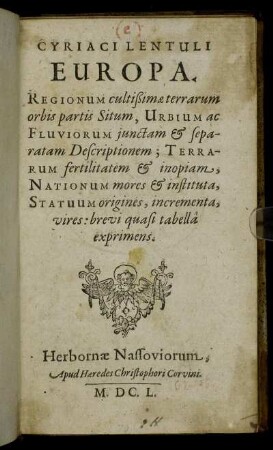 (c)
CYRIACI LENTULI
EUROPA.
REGIONUM cultißimæ terrarum
orbis partis Situm, URBIUM ac
FLUVIORUM junctam & sepa-
ratam Descriptionem; TERRA-
RUM fertilitatem & inopiam,
NATIONUM mores & instituta,
STATUUM origines, incrementa,
vires: brevi quasi tabellâ
exprimens.
Herbornæ Nassoviorum,
Apud Hæredes Christophori Corvini.
M. DC. L.